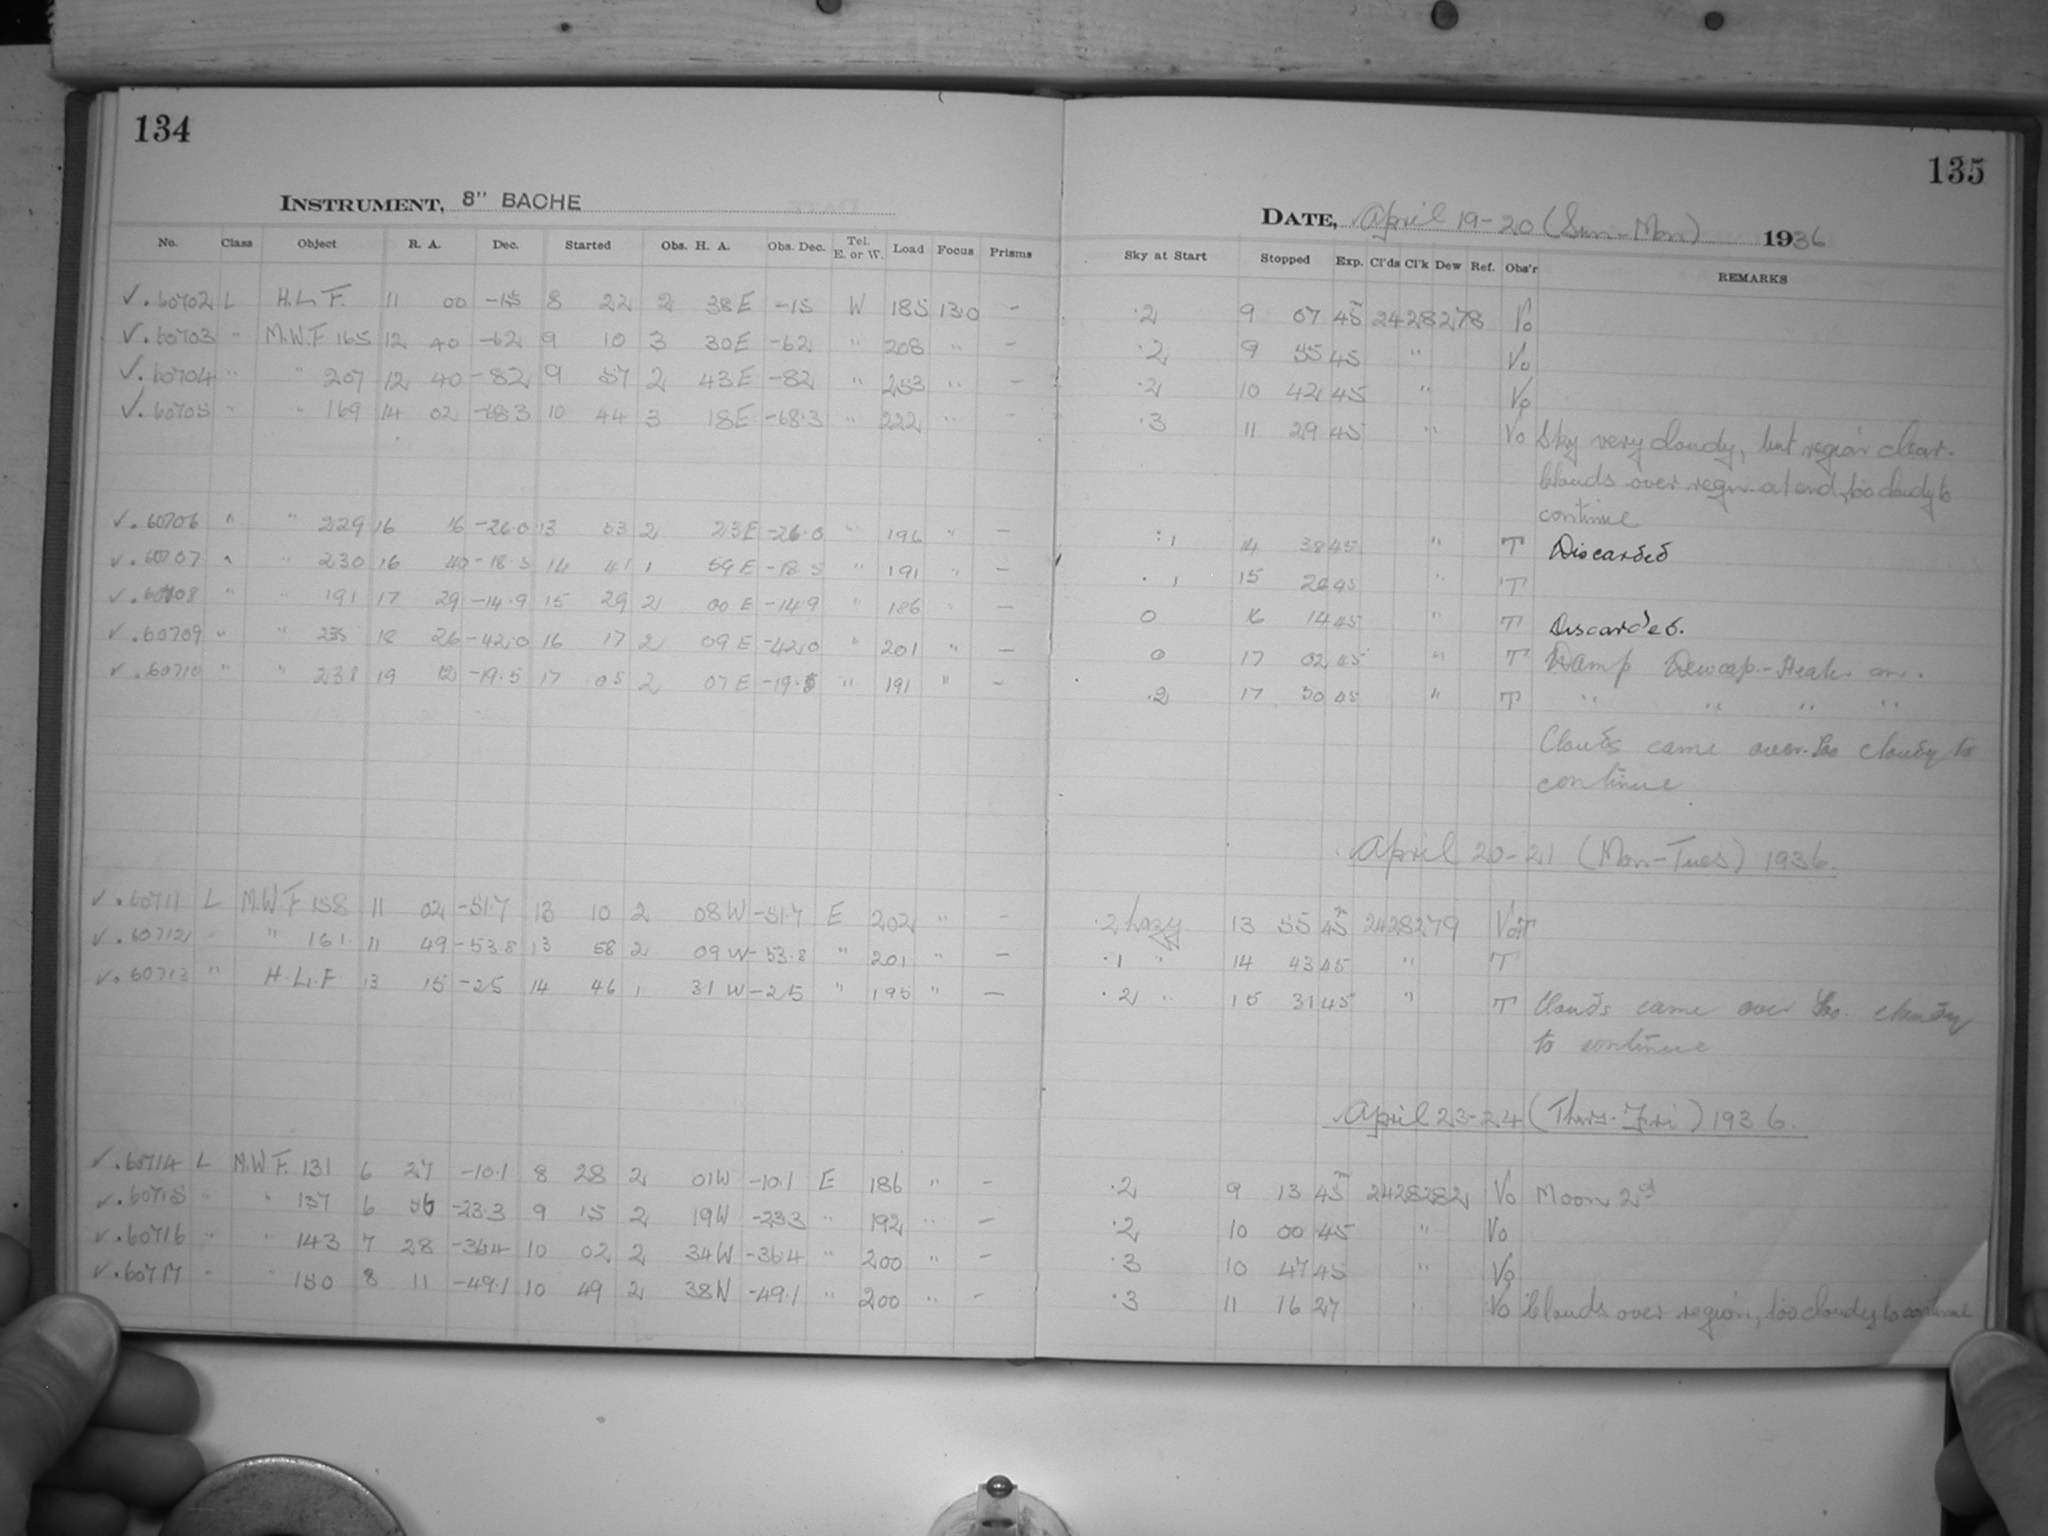 134
INSTRUMENT, 8" BACHE
No. Class Object R. A. Dec. Started Obs. H. A. Obs. Dec. Tel. E. or W. Load Focus Prisms
✓.60702 L H.L.F. 11 00 -15 8 22 2 38E -15 W 185 13.0 -
✓.60703 " M.W.F 165 12 40 -62 9 10 3 30E -62 " 208 " -
✓.60704 " " 207 12 40 -82 9 57 2 43E -82 " 253 " -
✓.60705 " " 169 14 02 -68.3 10 44 3 18E -68.3 " 222 " -
✓.60706 " " 229 16 16 -26.0 13 53 2 23E -26.0 " 196 " -
✓.60707 " " 230 16 40 -18.5 14 41 1 59E -18.5 " 191 " -
✓.60708 " " 191 17 29 -14.9 15 29 2 00E -14.9 " 186 " -
✓.60709 " " 235 18 26 -42.0 16 17 2 09E -42.0 " 201 " -
✓.60710 " " 238 19 12 -19.5 17 05 2 07E -19.5 " 191 " -
✓.60711 L M.W.F 158 11 02 -51.7 13 10 2 08W -51.7 E 202 " -
✓.60712 " " 161 11 49 -53.8 13 58 2 09W -53.8 " 201 " -
✓.60713 " H.L.F. 13 15 -25 14 46 1 31W -25 " 195 " -
✓.60714 L M.W.F. 131 6 27 -10.1 8 28 2 01W -10.1 E 186 " -
✓.60715 " " 137 6 56 -23.3 9 15 2 19W -23.3 " 192 " -
✓.60716 " " 143 7 28 -36.4 10 02 2 34W -36.4 " 200 " -
✓.60717 " " 150 8 11 -49.1 10 49 2 38W -49.1 " 200 " -
135
DATE, April 19-20 (Sun-Mon) 1936
Sky at Start Stopped Exp. Cl'ds Cl'k Dew Ref. Obs'r REMARKS
.2 9 07 45m 2428278 Vo
.2 9 55 45 " Vo
.2 10 42 45 " Vo
.3 11 29 45 " Vo Sky very cloudy, but region clear.
Clouds over regn. at end, too cloudy to
continue
.1 14 38 45 " T Discarded
.1 15 26 45 " T
0 16 14 45 " T Discarded.
0 17 02 45 " T Damp Dewcap-Heater on.
.2 17 50 45 " T " " " "
Clouds came over. Too cloudy to
continue
April 20-21 (Mon-Tues) 1936.
.2 hazy 13 55 45m 2428279 Vo+T
.1 " 14 43 45 " T
.2 " 15 31 45 " T Clouds came over Too cloudy
to continue
April 23-24 (Thurs-Fri) 1936.
.2 9 13 45m 2428282 Vo Moon 2d
.2 10 00 45 " Vo
.3 10 47 45 " Vo
.3 11 16 27 " Vo Clouds over region, too cloudy to continue